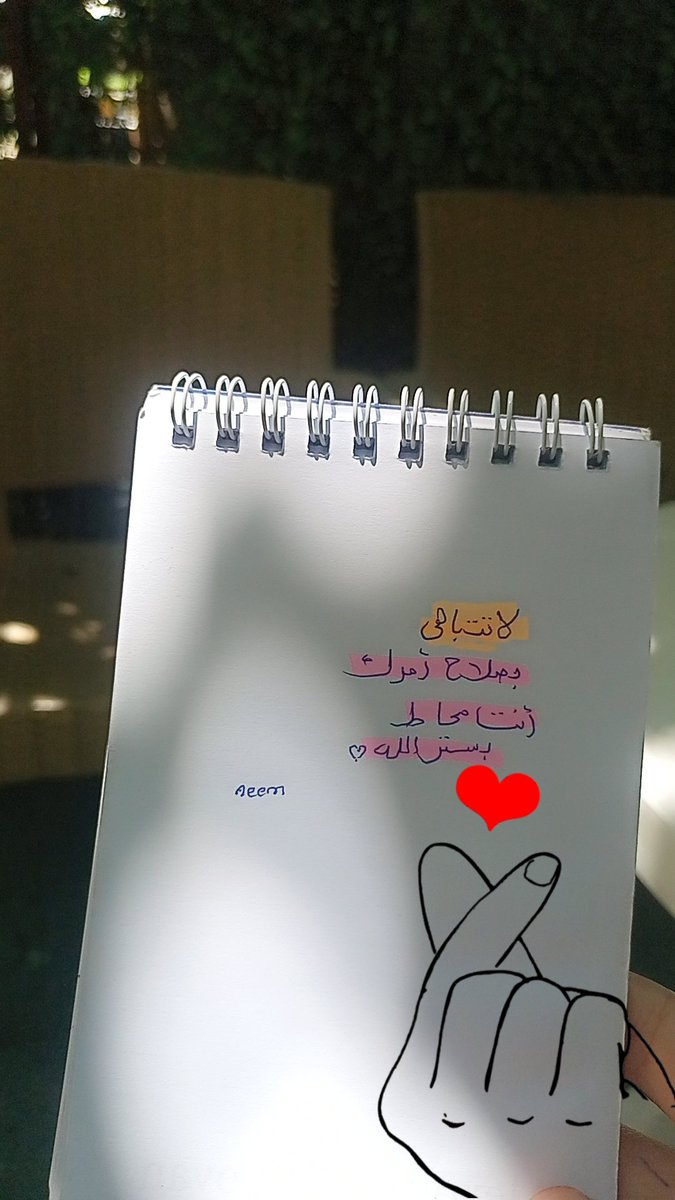 لا تتباهى
بصلاح أمرك
أنت محاط
بستر الله ♡
Aeem